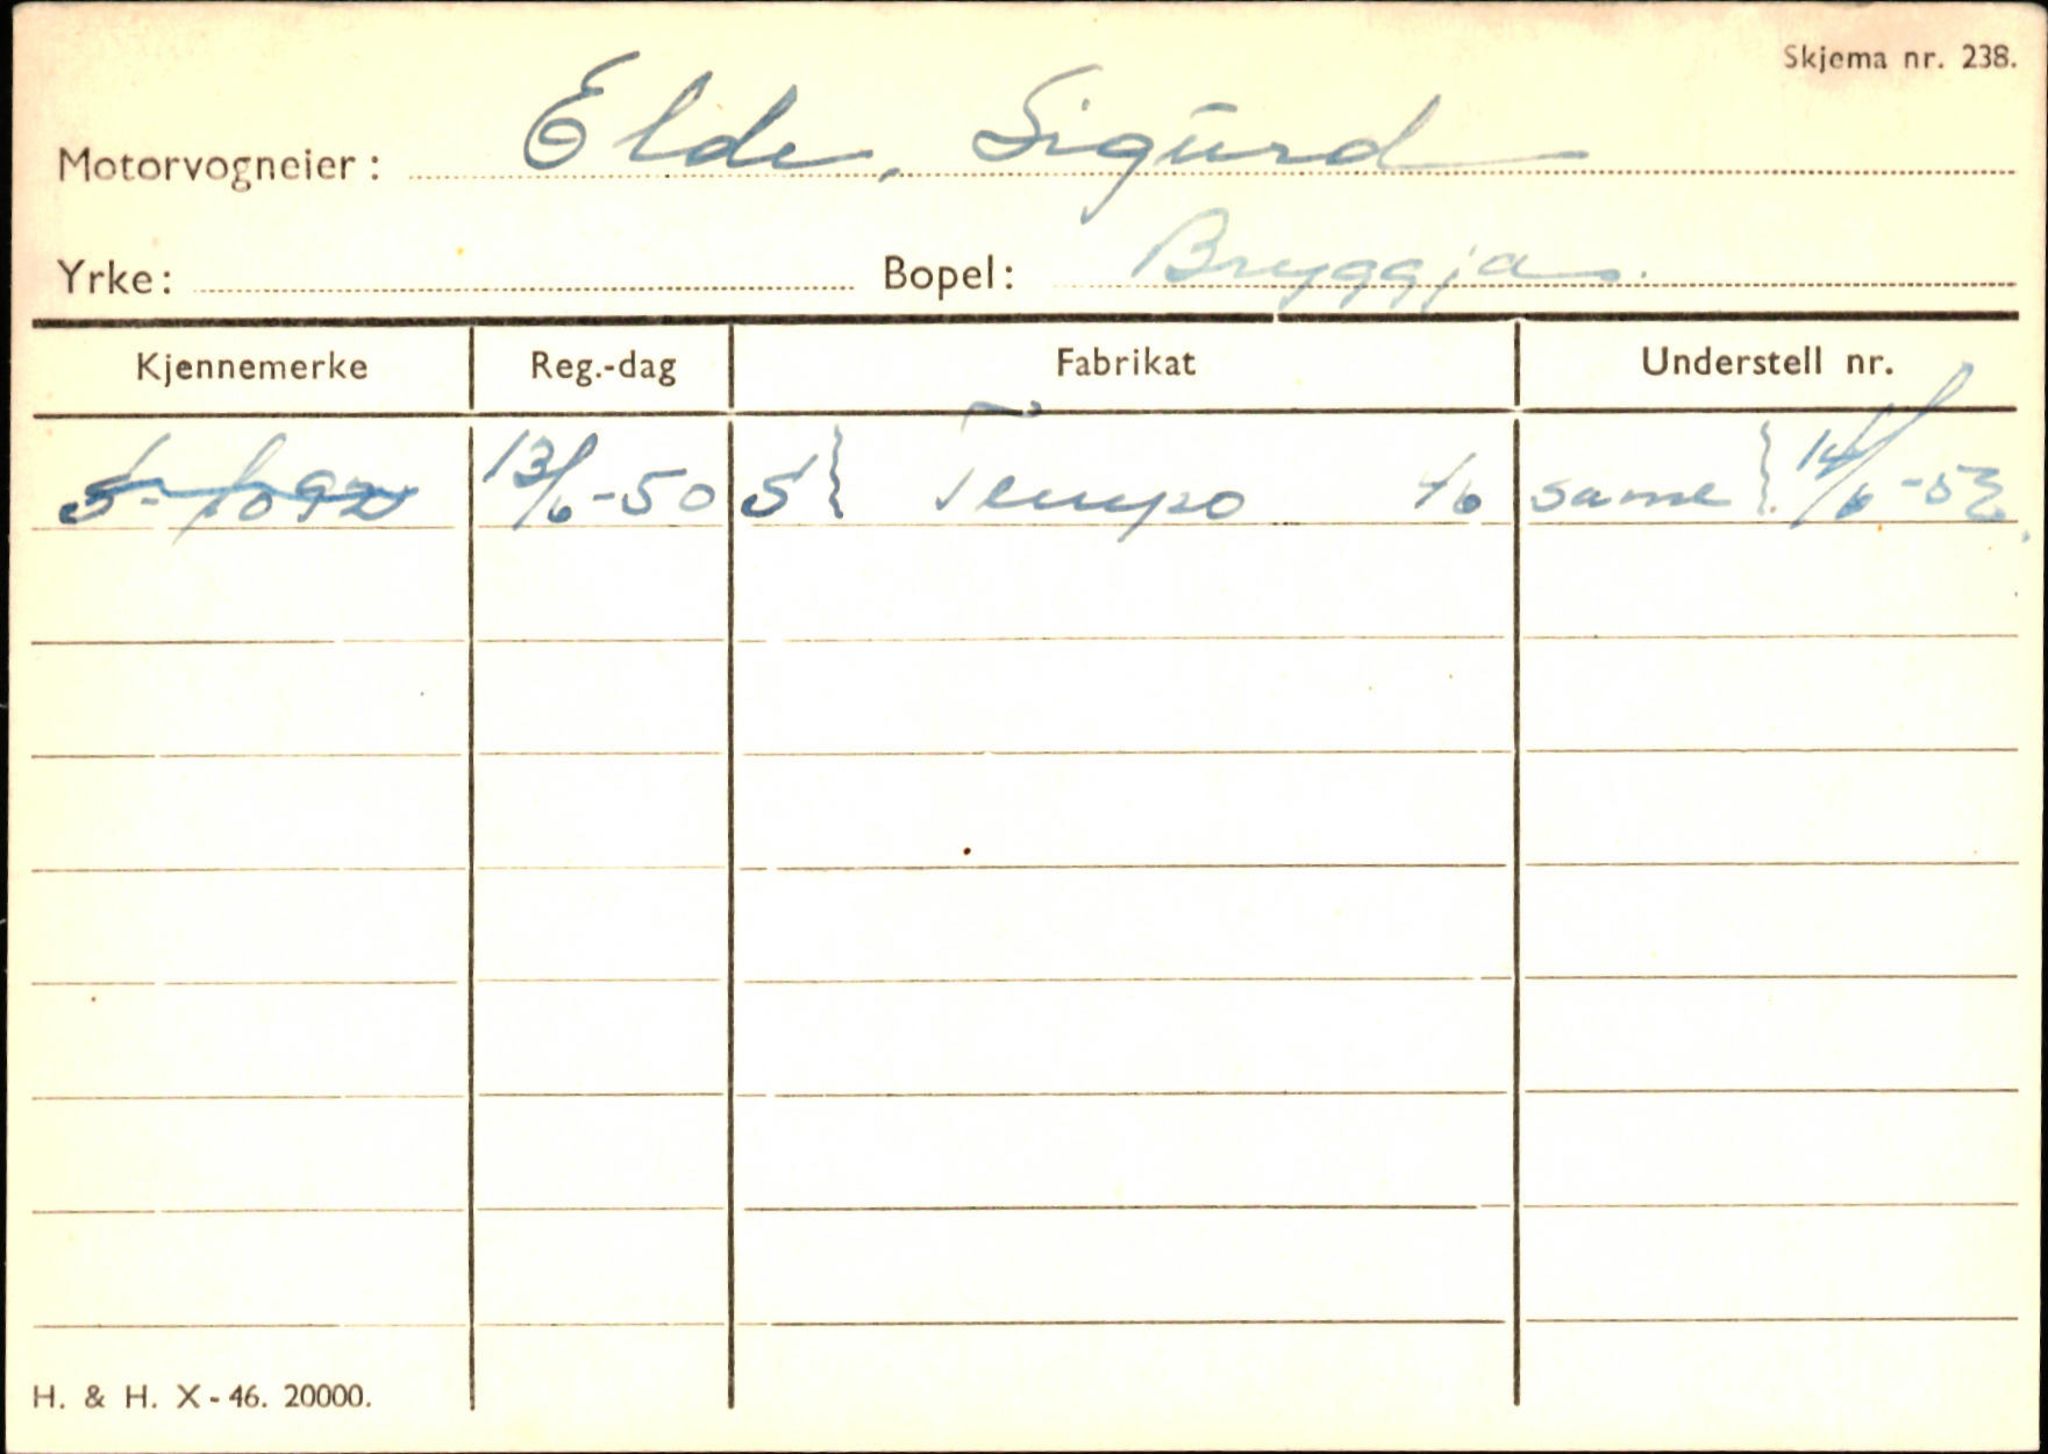 Skjema nr. 238.
Motorvogneier: Elde, Sigurd
Yrke: Bopel: Bryggja.
Kjennemerke Reg.-dag Fabrikat Understell nr.
S-1092 13/6-50 S } Tempo 46 same } 14/6-52
H. & H. X-46. 20000.